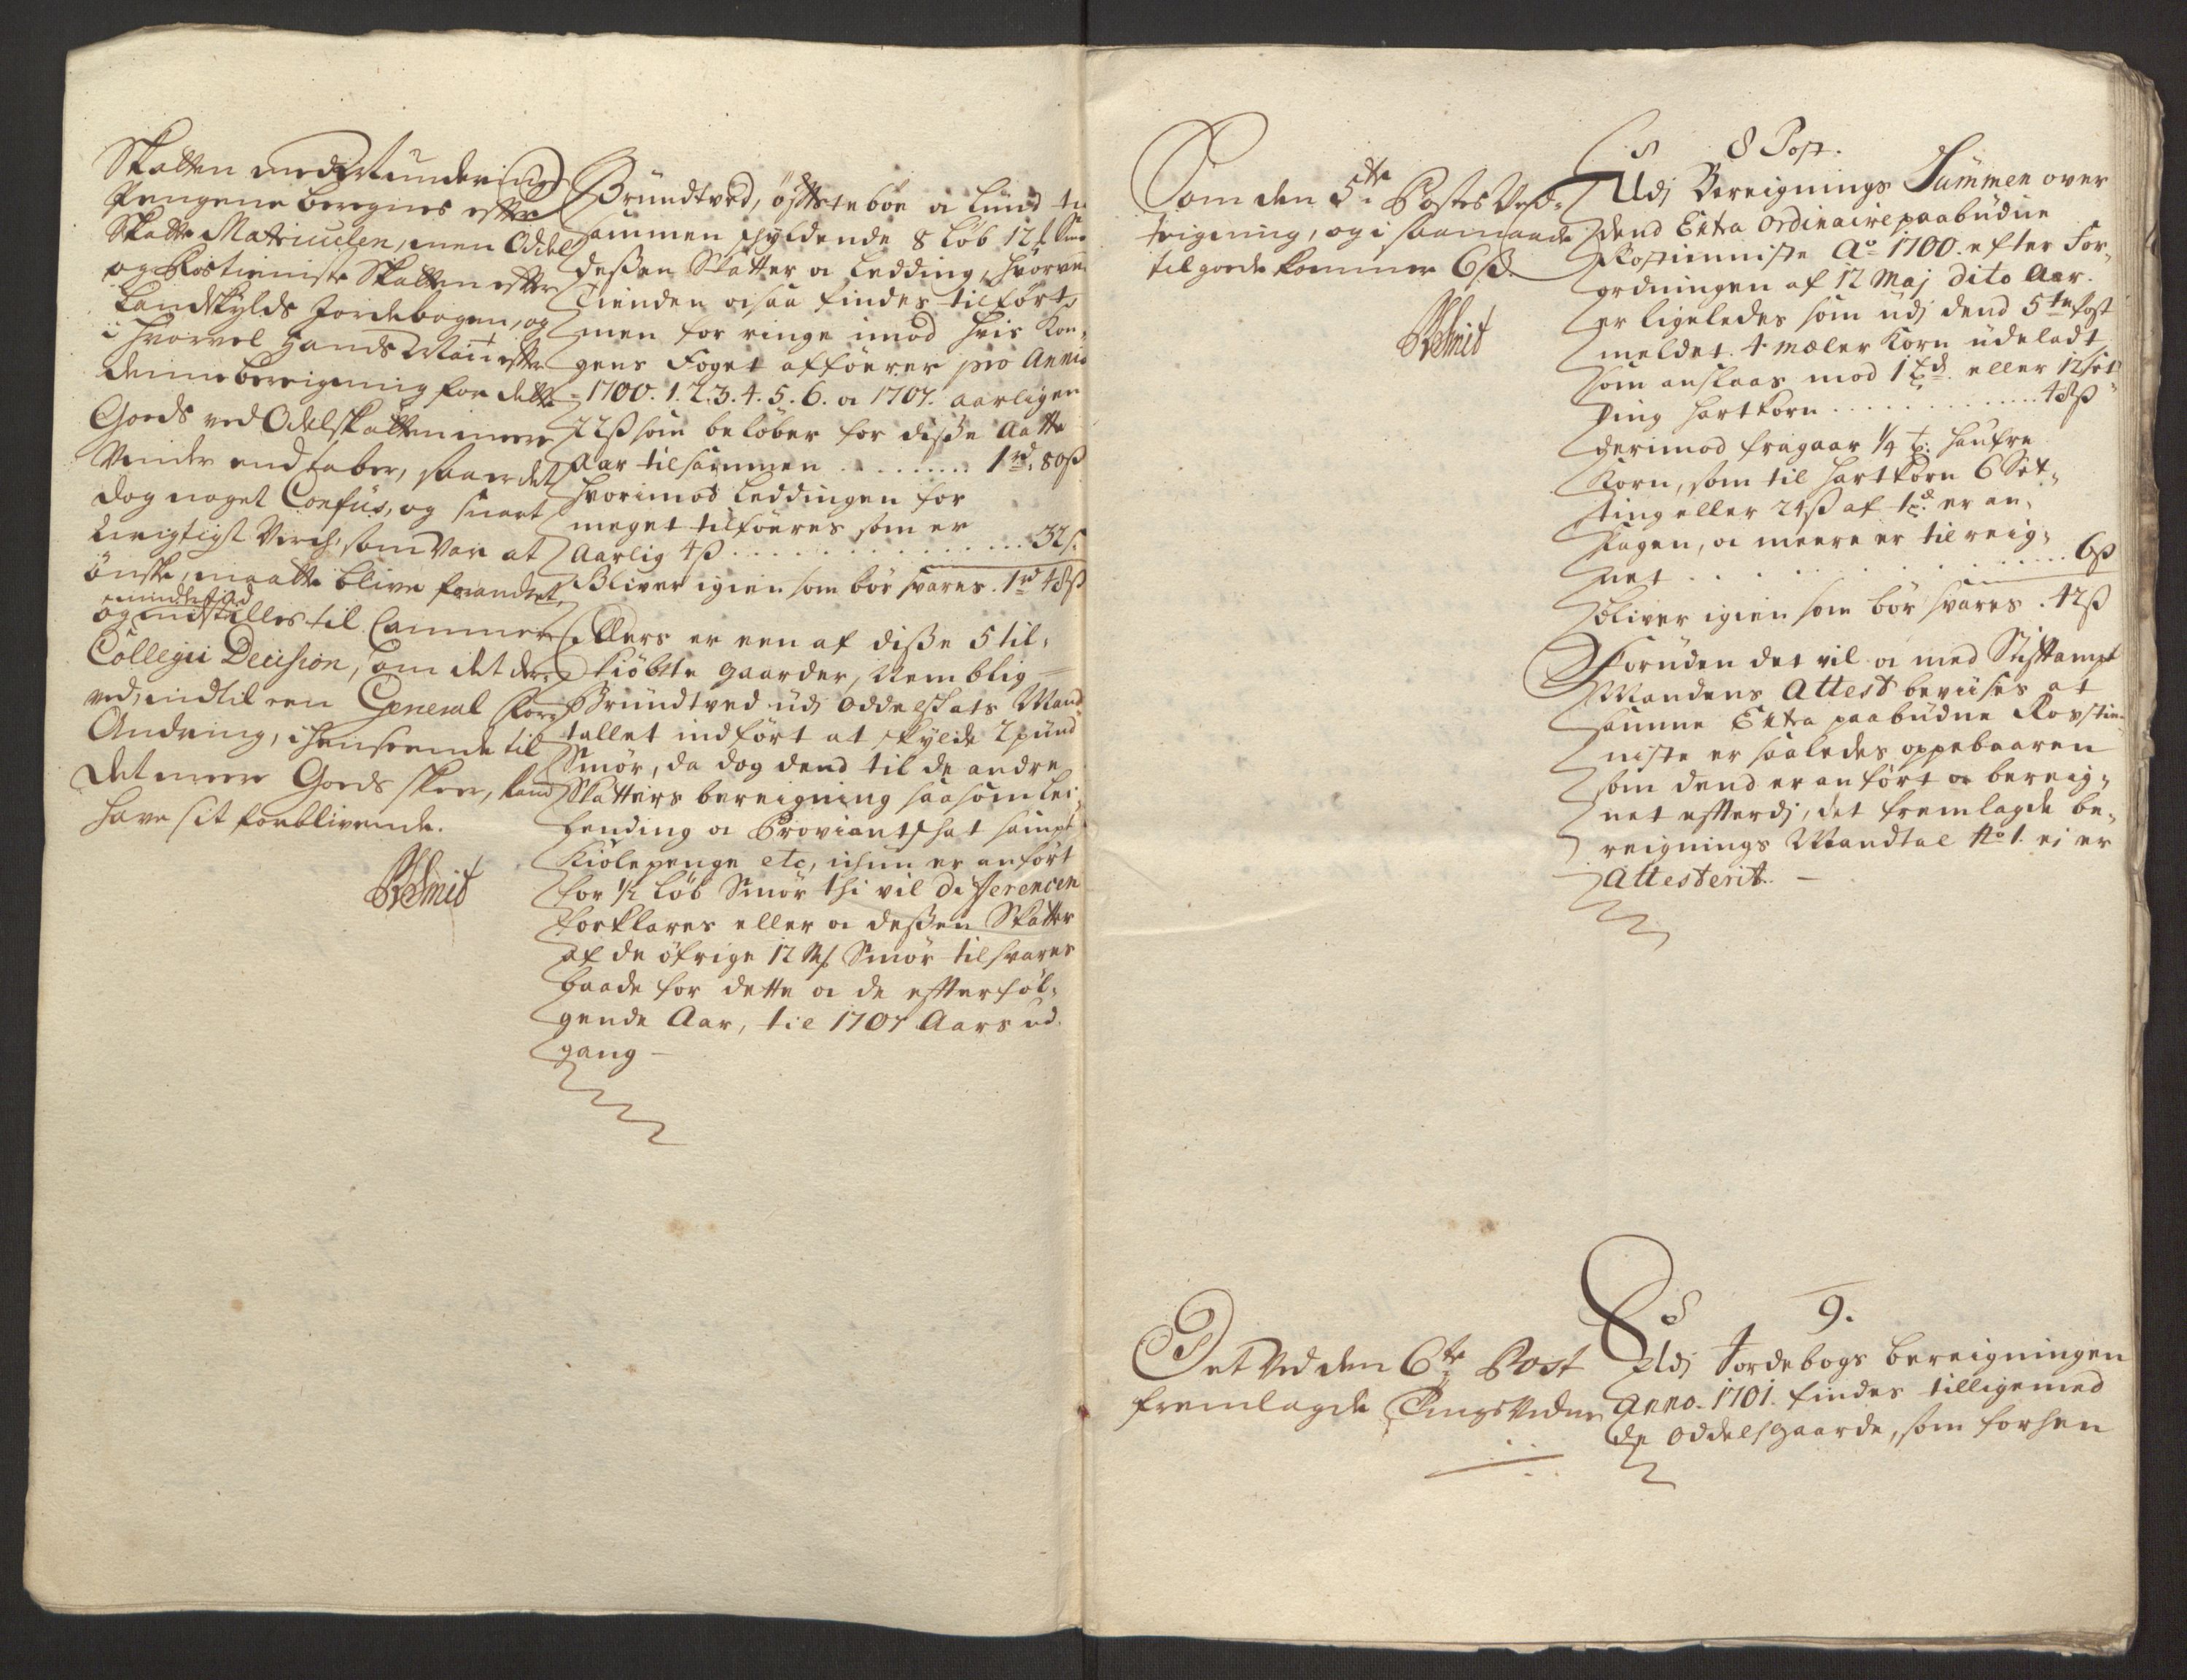 Skatten med Munderings
Pengene beregnes efter
Skatte Matriculen, men Odel
og Rostieniste Skatten efter
Landskylds Jordebogen, og
i hvorvel hands Mait efter
denne bereigning for dette
Goeds ved Odelskatten meere
Vinder end taber, saa er det
dog noget Confus, og snart
Urigtigst Verch, som var at
ønske, maatte blive forandret,
imidlertid
og indstilles til Cammer
Collegii Decision, om det der
ved, indtil een General for
Andring, i henseende til
det meere Goeds skeer, kand
have sit forblivende.
Smit
Gründtved, østteboe oc Lund til
sammen schyldende 8 Løb 12
deßen Skatter oc Ledding, hvorve
Tienden ocsaa findes tilført,
men for ringe imod hvis Kon¬
gens Foget afføerer pro Annis
1700. 1. 2. 3. 4. 5. 6. oc 1707. aarligen
22ß som beløber for diße Aatte
Aar tilsammen . . . . . . . . 1rd 80ß
hvorimod Leddingen for
meget tilføeres som er
Aarlig 4ß . . . . . . . . . . . . 32ß
Bliver igien som bør svares. 1rd 48ß
Ellers er een af diße 5 til¬
kiøbte gaarder, Nemblig
Gründtved udj Oddelschats Mand
tallet indført at skylde 2 pund
Smør, da dog dend til de andre
Skatters bereigning saasom Lei
lending oc Proviantschat sampt
Kiølepenge etc, ichun er anført
for 1/2 Løb Smør thi vil differencen
forklares eller oc deßen Skatter
af de øfrige 12 Mk Smør tilsvares
baade for dette oc de efterføl¬
gende Aar, til 1707 Aars ud
gang –
Som den 5te Postes Ved¬
teigning, og i saamaade
til goede kommer 6ß.
Smit
8 Post.
Udj Bereignings Summen over
dend Extra ordinaire paabudne
Rostienniste Ao 1700. efter For¬
ordningen af 12 Maj dito Aar.
er ligeledes som udj dend 5te post
meldet. 4 mæler Korn udeladt
som anslaas mod 1 Td. eller 12 set
ting hartkorn . . . . . . . . . . . . 48ß
derimod fragaar 1/4 t: haufre
Korn, som til hartkorn 6 Set¬
ting eller 24ß af 1 d. er an¬
slagen, oc meere er tilreig¬
net . . . . . . . . . . . . 6ß
bliver igien som bør svares . 42ß
Foruden det vil oc med Stiftampt
Mandens Attest beviises at
samme Extra paabudne Rosstien¬
niste er saaledes oppebaaren
som dend er anført oc bereig¬
net efterdj, det fremlagde be¬
reignings Mandtal No 1. ej er
Attesterit. –
Det ved den 6te Post
fremlagde Tings Vidne
9.
Udj Jordebogs bereigningen
Anno. 1701. findes tilligemed
de Oddelsgaarde, som forhen